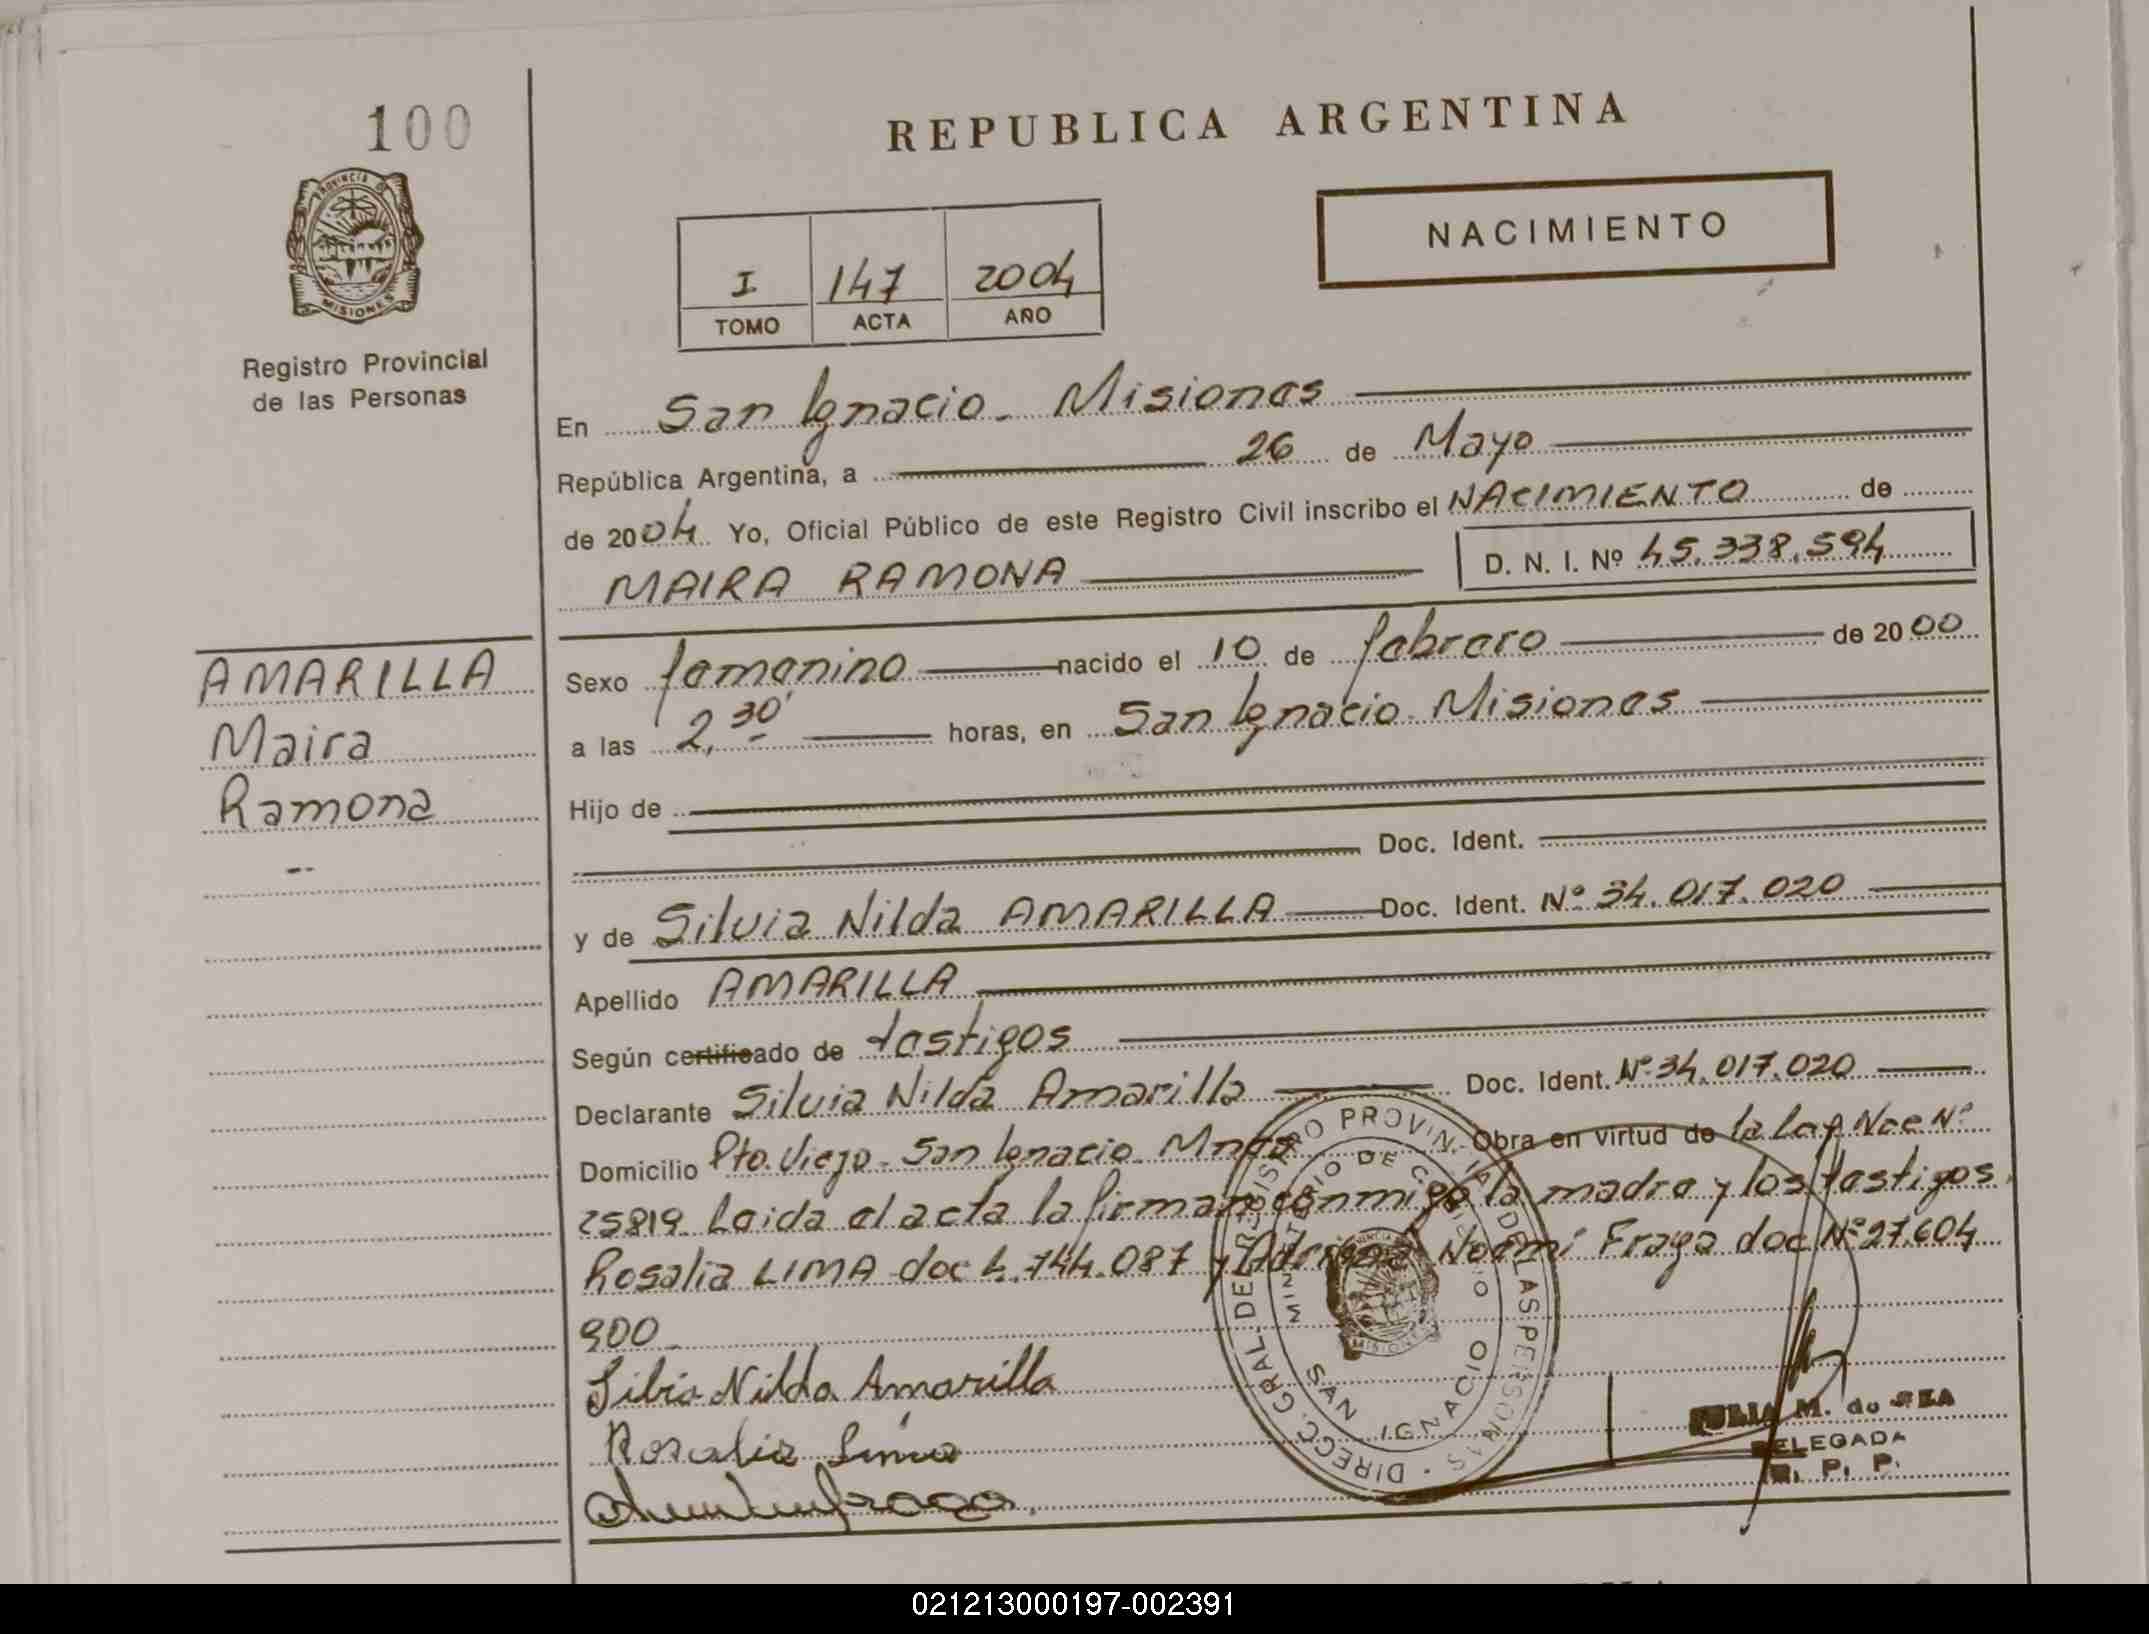 100
PROVINCIA DE
MISIONES
Registro Provincial
de las Personas
REPUBLICA ARGENTINA
NACIMIENTO
I 147 2004
TOMO ACTA AÑO
En San Ignacio - Misiones
República Argentina, a 26 de Mayo
de 2004 Yo, Oficial Público de este Registro Civil inscribo el NACIMIENTO de
MAIRA RAMONA D. N. I. Nº 45.338.594
AMARILLA
Maira
Ramona
Sexo femenino nacido el 10 de febrero de 2000
a las 2,30' horas, en San Ignacio Misiones
Hijo de
Doc. Ident.
y de Silvia Nilda AMARILLA Doc. Ident. Nº 34.017.020
Apellido AMARILLA
Según certificado de testigos
Declarante Silvia Nilda Amarilla Doc. Ident. Nº 34.017.020
Domicilio Pto. Viejo - San Ignacio - Mnes Obra en virtud de la Ley Nac Nº
25819. Leida el acta la firman conmigo la madre y los testigos
Rosalia LIMA doc 4.744.087 y Adriana Noemí Fraga doc Nº 27.604
900
Silvia Nilda Amarilla
Rosalia Lima
DIRECC. GRAL. DEL REGISTRO PROVINCIAL DE LAS PERSONAS
MINISTERIO DE GOBIERNO
SAN IGNACIO
MISIONES
JULIA M. de
DELEGADA
R. P. P.
021213000197-002391